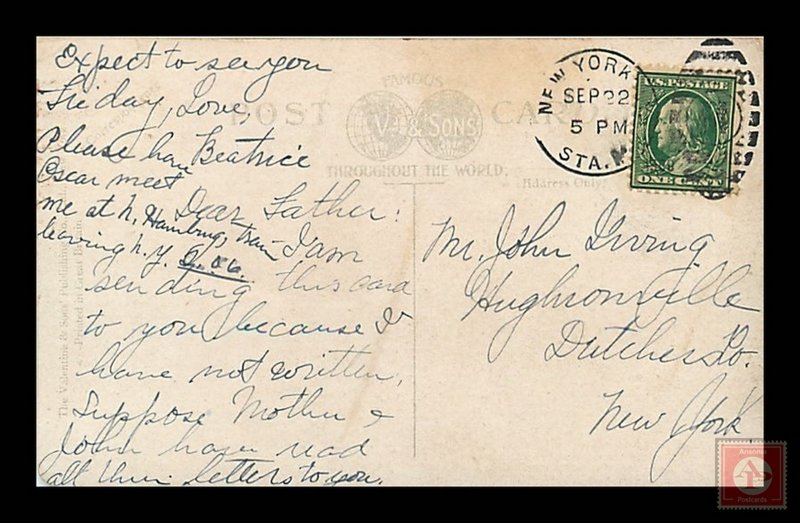 Expect to see you
Friday, Love,
Beatrice
Please have
Oscar meet
me at N. Hamburg, train
leaving N.Y. 2.06.
Dear Father:
I am
sending this card
to you because I
have not written.
Suppose Mother &
John have read
all their letters to you.
POST CARD
FAMOUS
V. & SONS
THROUGHOUT THE WORLD.
Address Only
The Valentine & Sons' Publishing Co.
Printed in Great Britain.
NEW YORK
SEP 22
5 PM
STA.
U.S. POSTAGE
ONE CENT
Mr. John Irving
Hughsonville
Dutchess Co.
New York
Ansonia
AP
Postcards